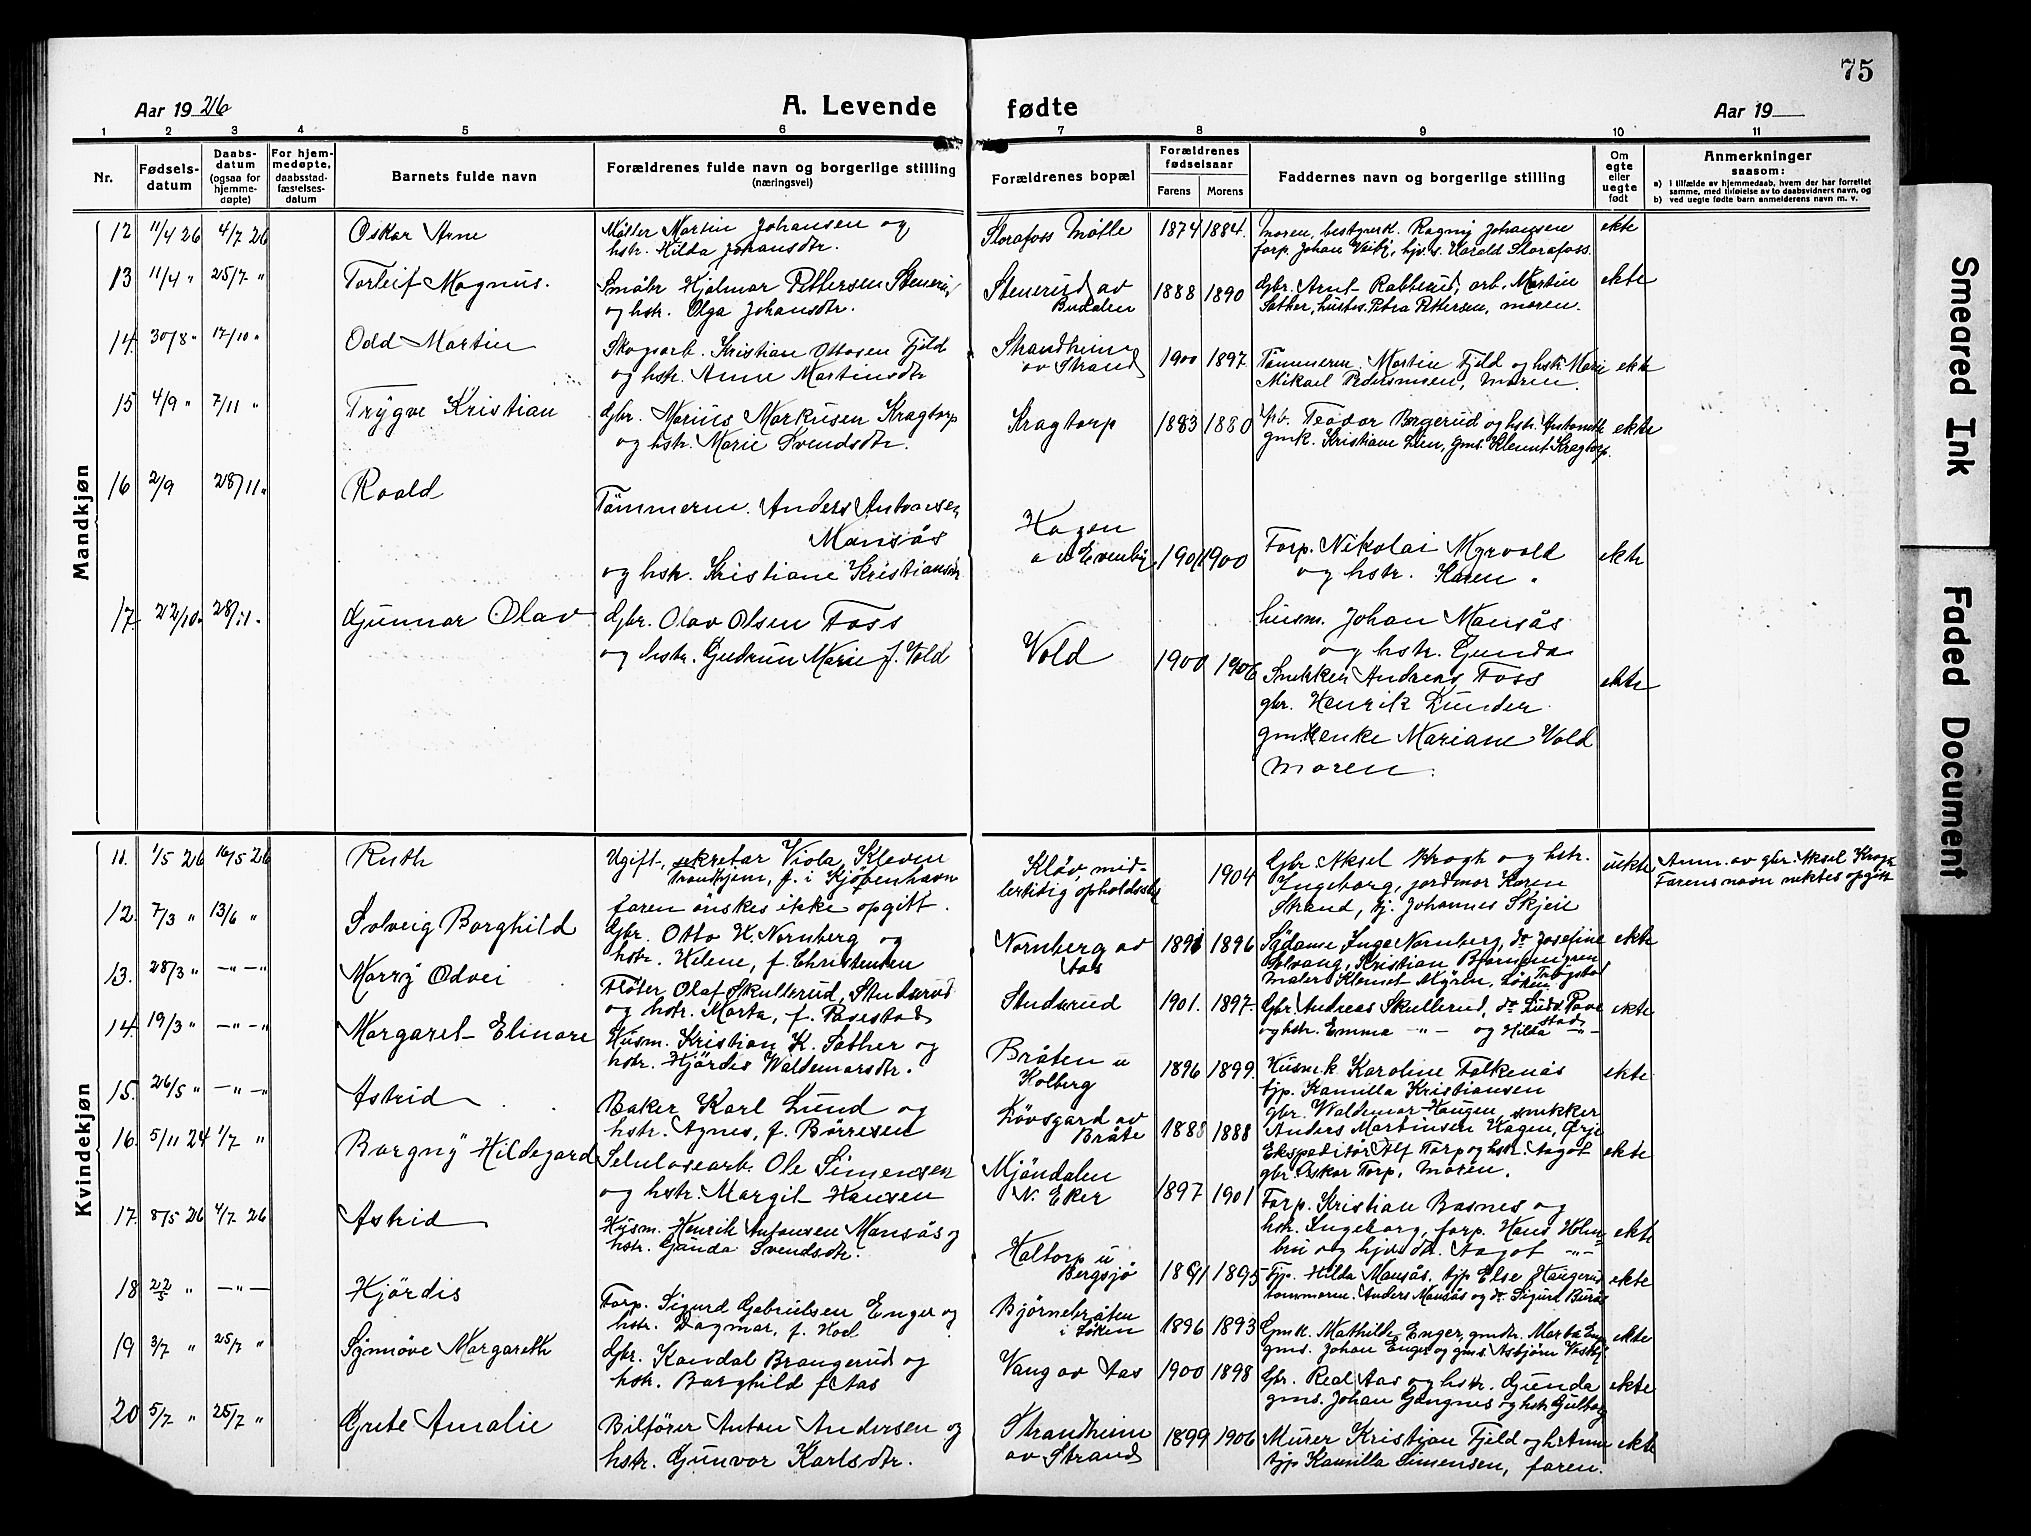 75
Aar 1926
A. Levende fødte
Aar 19
1 2 3 4 5 6 7 8 9 10 11
Nr.
Fødsels-
datum
Daabs-
datum
(ogsaa for
hjemme-
døpte)
For hjem-
medøpte,
daabsstad-
fæstelses-
datum
Barnets fulde navn
Forældrenes fulde navn og borgerlige stilling
(næringsvei)
Forældrenes bopæl
Forældrenes
fødselsaar
Farens Morens
Faddernes navn og borgerlige stilling
Om
egte
eller
uegte
født
Anmerkninger
saasom:
a) i tilfælde av hjemmedaab, hvem der har forrettet
samme, med tilføielse av to daabsvidners navn, og
b) ved uegte fødte barn anmelderens navn m. v.
Mandkjøn
12 11/4 26 4/7 26 Oskar Arne Møller Martin Johansen og Storafoss Mølle 1874 1884. Moren, bestyrerk. Ragny Johansen ekte
hstr. Hilda Johansdtr. forp. Johan Visby, hjv. s. Harald Storafoss.
13 11/4 " 25/7 " Torleif Magnus. Småbr Hjalmar Pettersen Stenerud Stenerud av 1888 1890 Gbr. Arnt Rakkerud, arb. Martin ekte
og hstr. Olga Johansdtr. Budalen Sather, hustes. Petra Pettersen, moren.
14. 30/8 " 17/10 " Odd Martin Skogsarb. Kristian Ottosen Fjeld Strandheim 1900 1897. Tømmerm. Martin Fjeld og hstr. Marie ekte
og hstr. Anne Martinsdtr av Strand Mikael Pedersmoen, Moren.
15 4/9 " 7/11 " Trygve Kristian Gbr. Marius Markusen Kragtorp Kragtorp 1883 1880 Teodor Borgerud og hstr. Antonette ekte
og hstr. Marie Svendsdtr. gmk. Kristiane Lien, gms. Klemet Kragtorp.
16 2/9 28/11 " Roald Tømmerm. Anders Antonsen Hagen
Mansås
og hstr. Kristiane Kristiansdtr av Evenby 1901 1900 Forp. Nikolai Myrvold ekte
og hstr. Karen "
17. 22/10 " 28/11 " Gunnar Olav Gbr. Olav Olsen Foss husm. Johan Mansås
og hstr. Gudrun Marie f. Vold Vold 1900 1906 og hstr. Gunda ekte
Snikker Andreas Foss
gbr. Henrik Lunder
gmk. enke Mariane Vold
Moren.
Kvindekjøn
11. 1/5 26 16/5 26 Ruth Ugift, sekretær Viola Kleven Kløv, mid- 1904 Gbr Aksel Krogh og hstr. uekte Anm. av gbr. Aksel Krogh
Trondhjem, f. i Kjøbenhavn lertidig opholdssted Ingeborg, jordmor Karen Farens navn nektes opgitt
faren ønskes ikke opgitt. Strand, tj. Johannes Skjeie
12. 7/3 " 13/6 " Solveig Borghild Gbr. Otto H. Nornberg og Nornberg av 1896 Inge Nornberg, do Josefine ekte
hstr. Helene, f. Christensen Aas Kristian Bjørnengren
13. 28/3 " -"- Marry Odvei Fløter Olaf Skullerud, Studsrud Studsrud 1901. 1897. Gbr Andreas Skullerud, ekte
og hstr. Marta, f. Pavestad og hstr. Emma -"- og Hilda -"-
14. 19/3 " -"- Margaret Elinore Husm. Kristian K. Sather og Bråten u 1896 1899. Husm.k Karoline Falkenås ekte
hstr. Hjørdis Waldemarsdtr. Kolberg tjp. Kamilla Kristiansen
gbr. Waldemar Haugen, snikker
15. 26/5 " -"- Astrid Baker Karl Lund og Løvsgard av 1888 1888 Anders Martinsen Hagen, Ørje ekte
hstr. Agnes, f. Børresen Bråte Ekspeditør Alf Torp og hstr. Aagot
gbr. Oskar Torp, Moren.
16. 5/11 24 1/7 " Borgny Hildegard Selulosearb. Ole Simensen Mjøndalen 1897 1901 Forp. Kristian Basnes og ekte
og hstr. Margit Hansen N. Eker hstr. Ingeborg, forp. Hans Holm-
bru og hjv. dtr. Aagot -"-
17. 8/5 26 4/7 26 Astrid Husm. Henrik Antonsen Mansås og Haltorp u 1891 1895 Tjp. Hilda Mansås, tjp Else Haugerud ekte
hstr. Gunda Svendsdtr. Bergsjø tømmerm. Anders Mansås og do Sigurd Burås
18 22/5 " -"- Hjørdis Forp. Sigurd Gabrielsen Enger og Bjørnebråten 1896 1893 Gmk. Mathilde Enger, gmdtr. Marta Enger ekte
hstr. Dagmar, f. Hoel i Løken gms. Johan Enger og gms. Asbjørn Vestby
19 3/7 " 25/7 " Synnøve Margareth Gbr. Kandal Brangerud og Vang av Aas 1900 1898 Gbr. Aas og hstr. Gunda ekte
hstr. Borghild f. Aas gms. Johan Gangnes og hstr. Gulborg
20 5/7 " 25/7 " Grete Amalie Bilfører Anton Andersen og Strandheim 1899 1906 Murer Kristian Fjeld og h. Anne ekte
hstr. Gunvor Karlsdtr. av Strand tjp Kamilla Simensen, faren.
Smeared Ink
Faded Document